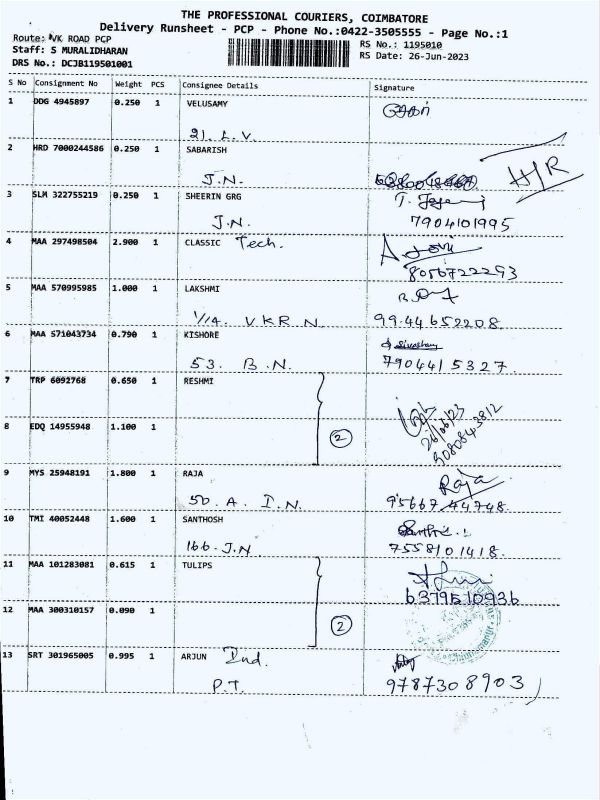 THE PROFESSIONAL COURIERS, COIMBATORE
Delivery Runsheet - PCP - Phone No.:0422-3505555 - Page No.:1
Route: VK ROAD PCP
Staff: S MURALIDHARAN
DRS No.: DCJB119501001
RS No.: 1195010
RS Date: 26-Jun-2023
S No Consignment No Weight PCS Consignee Details Signature
1 DDG 4945897 0.250 1 VELUSAMY
21. L.V.
2 HRD 7000244586 0.250 1 SABARISH
J.N. H/R
3 SLM 322755219 0.250 1 SHEERIN GRG
J.N. 7904101995
4 MAA 297498504 2.900 1 CLASSIC Tech.
8056722293
5 MAA 570995985 1.000 1 LAKSHMI
1/1A. V.K.R.N 9944652208
6 MAA 571043734 0.790 1 KISHORE
53. B.N. 7904415327
7 TRP 6092768 0.650 1 RESHMI
26/06/23
8 EDQ 14955948 1.100 1 2 9080843812
9 MYS 25948191 1.800 1 RAJA Raja
50. A. I.N. 9566744748
10 TMI 40052448 1.600 1 SANTHOSH
166. J.N 7558101418.
11 MAA 101283081 0.615 1 TULIPS
6379510936
12 MAA 300310157 0.090 1 2
13 SRT 301965005 0.995 1 ARJUN Ind.
P.T. 9787308903